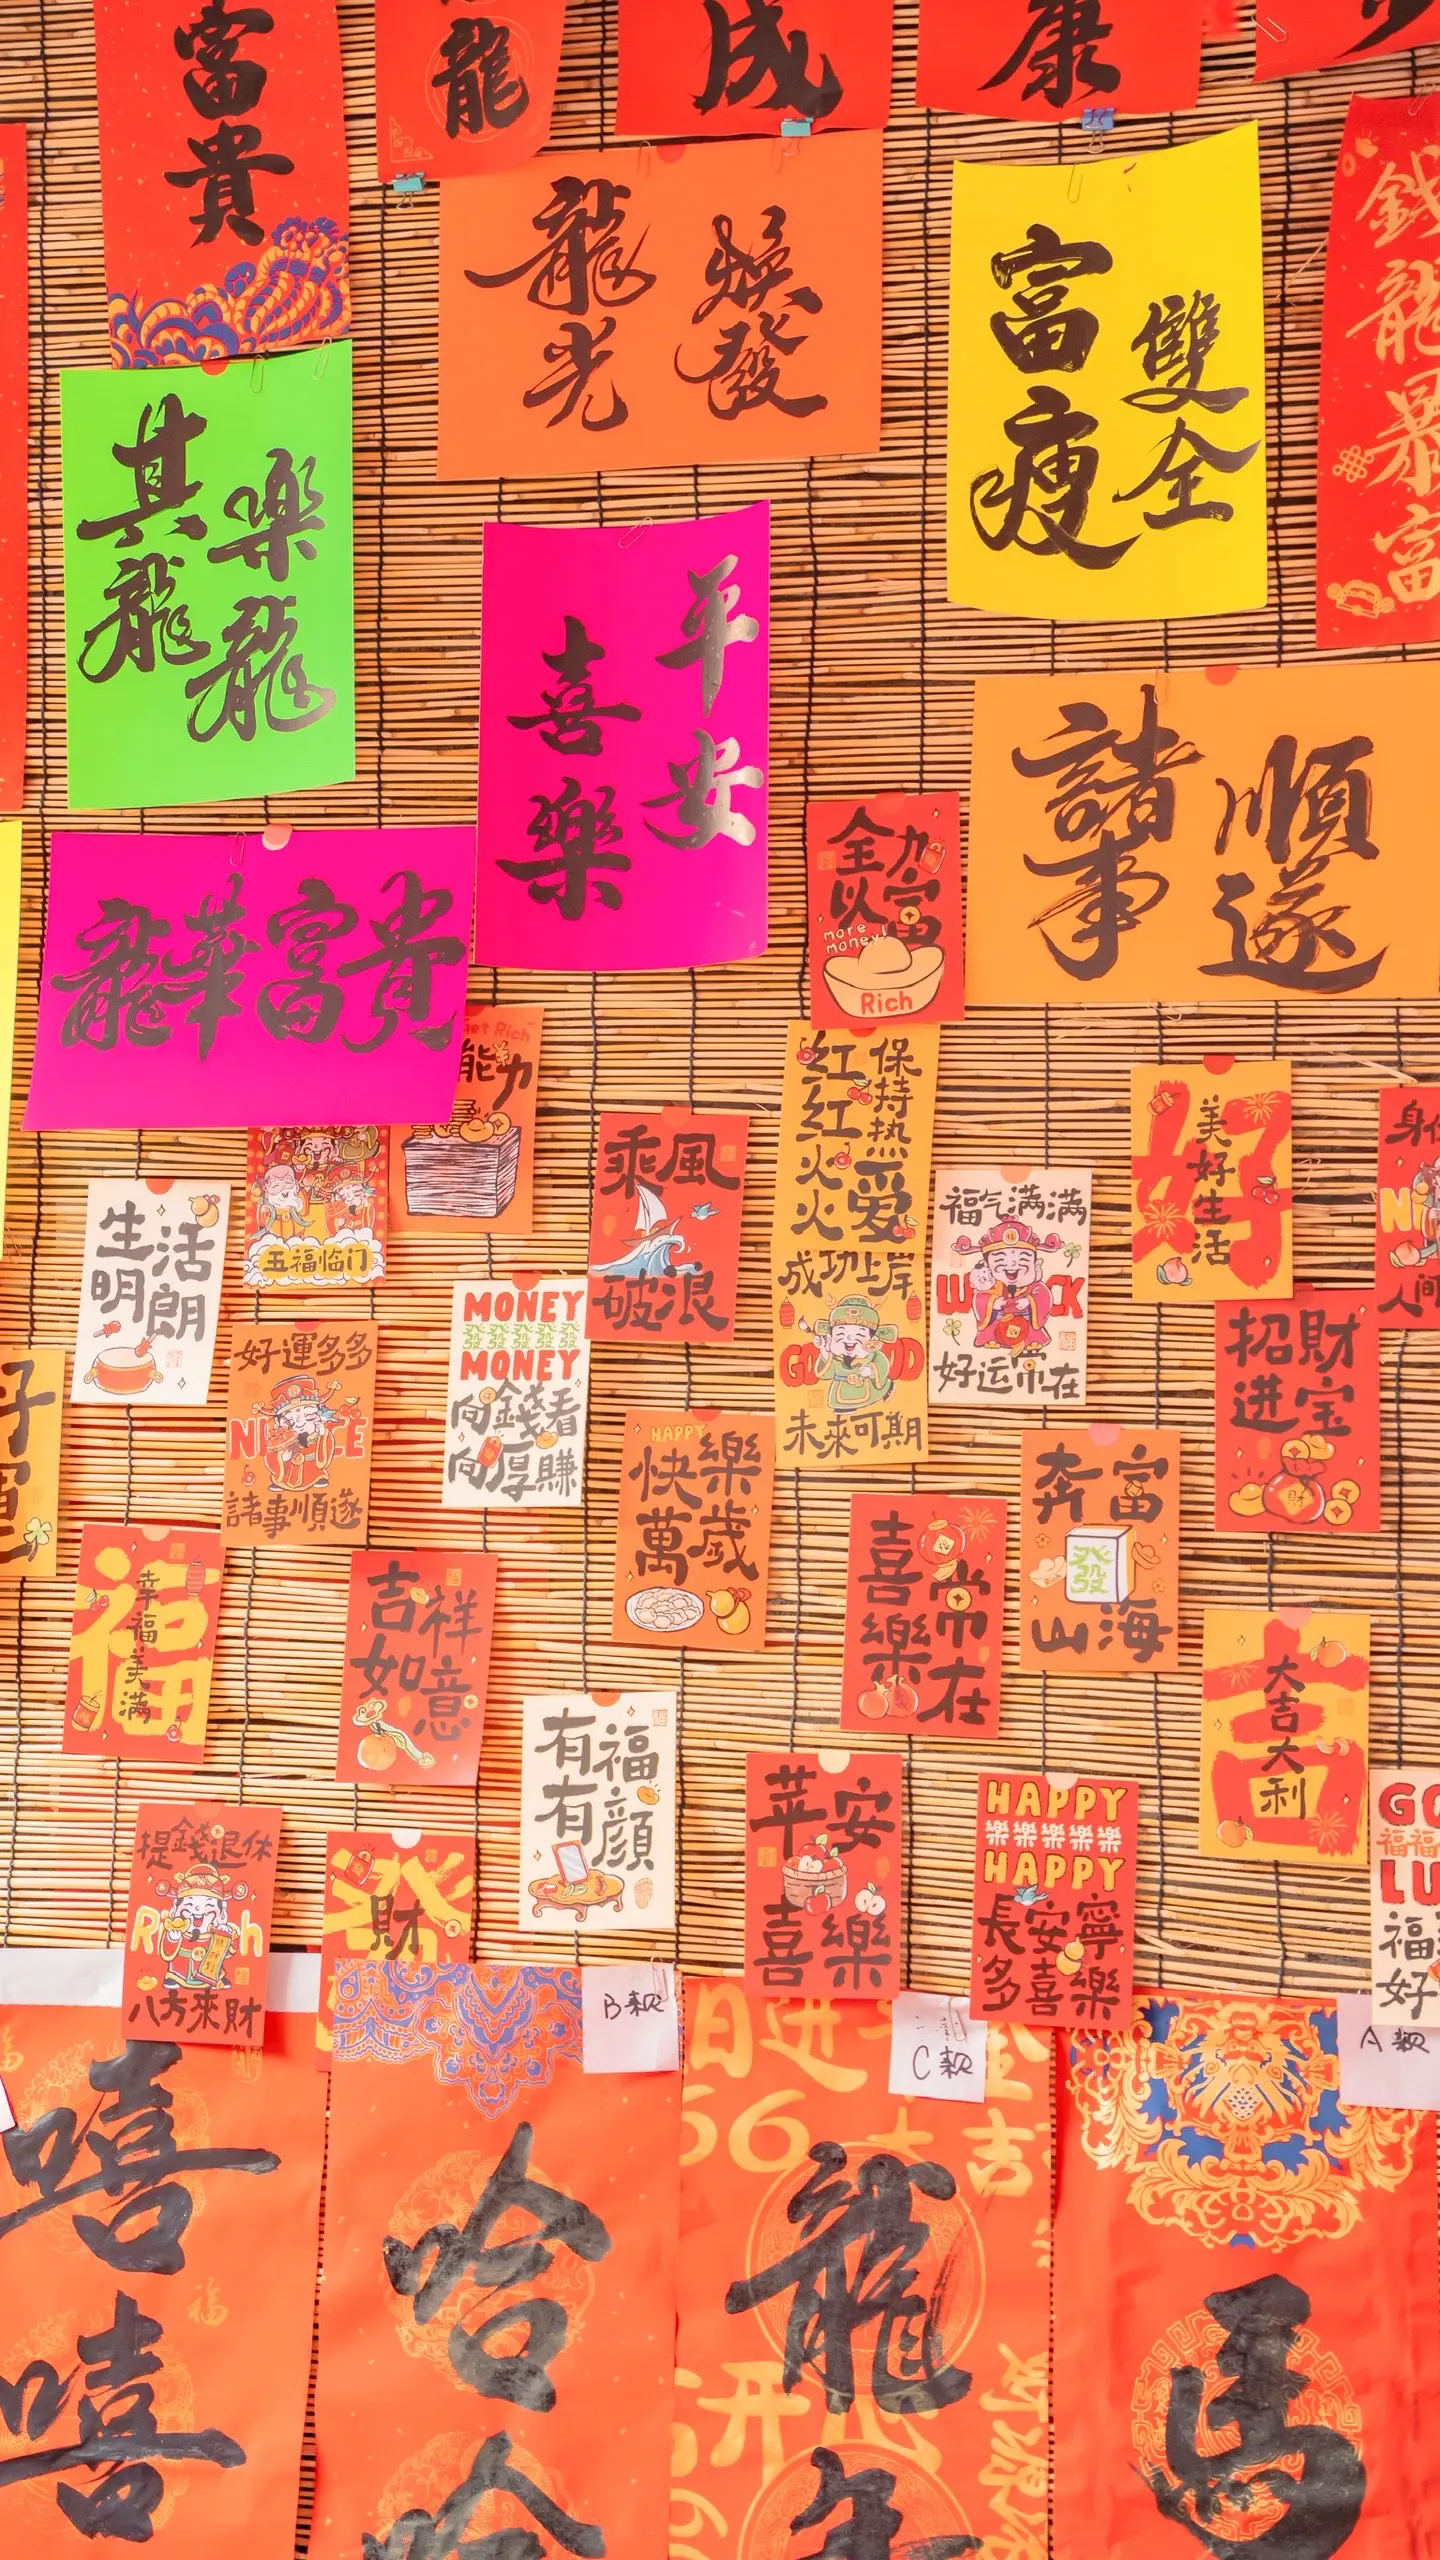 富貴
龍
成
康
龍光
煥發
富瘦
雙全
錢龍暴富
其龍
樂龍
平安
喜樂
諸事
順遂
龍華富貴
全力
以富
more money!
Rich
Get Rich
能力
五福临门
生活
明朗
乘風
破浪
红红火火
保持热爱
成功上岸
GOOD
未來可期
福气满满
LUCK
好运常在
好
美好生活
招財
进宝
好運多多
NICE
諸事順遂
MONEY
發發發發發
MONEY
向錢看
向厚賺
HAPPY
快樂
萬歲
奔富
發
山海
喜樂
常在
福
幸福美满
吉祥
如意
有福
有顏
吉
大吉大利
苹安
喜樂
HAPPY
樂樂樂樂樂
HAPPY
長安寧
多喜樂
提錢退休
Rich
八方來財
發
財
B款
C款
A款
嘻嘻
哈哈
龍
馬